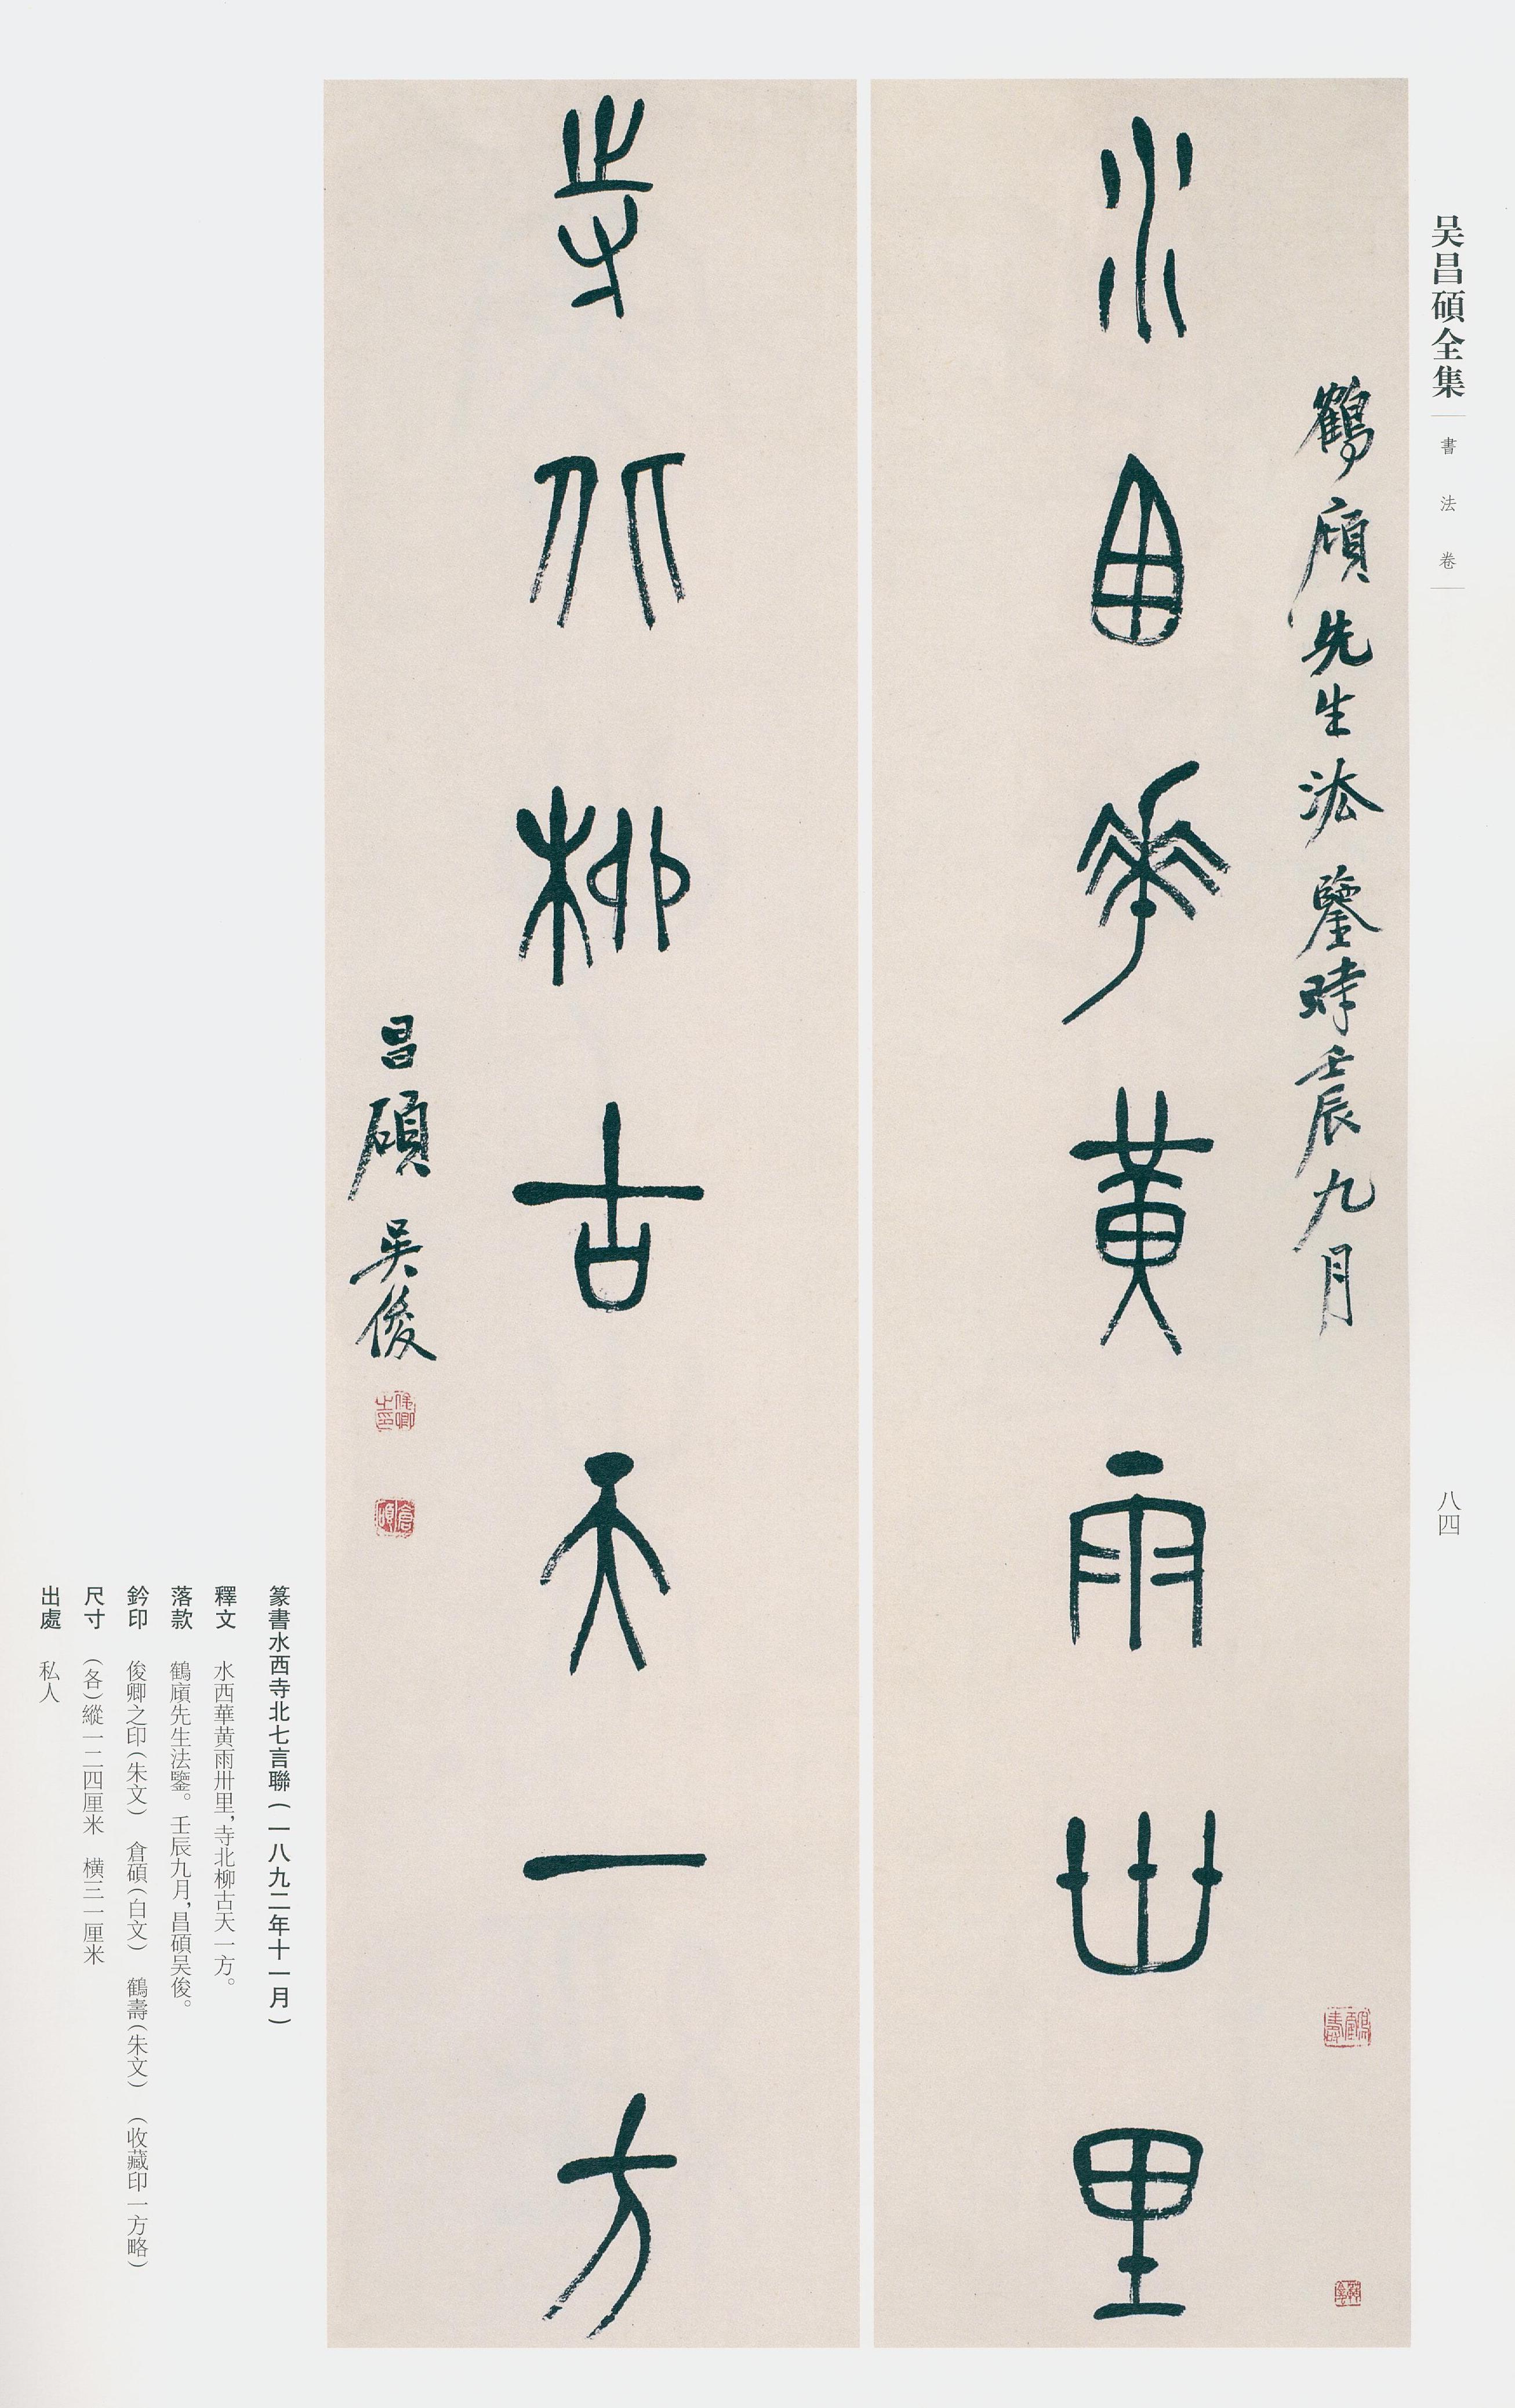 吴昌碩全集
書法卷
八四
鶴廎先生法鑒時壬辰九月
水西華黃雨卅里
寺北柳古天一方
昌碩吳俊
俊卿之印
倉碩
鶴壽
篆書水西寺北七言聯(一八九二年十一月)
釋文 水西華黄雨卅里,寺北柳古天一方。
落款 鶴廎先生法鑒。壬辰九月,昌碩吴俊。
鈐印 俊卿之印(朱文) 倉碩(白文) 鶴壽(朱文) (收藏印一方略)
尺寸 (各)縱一二四厘米 橫三一厘米
出處 私人